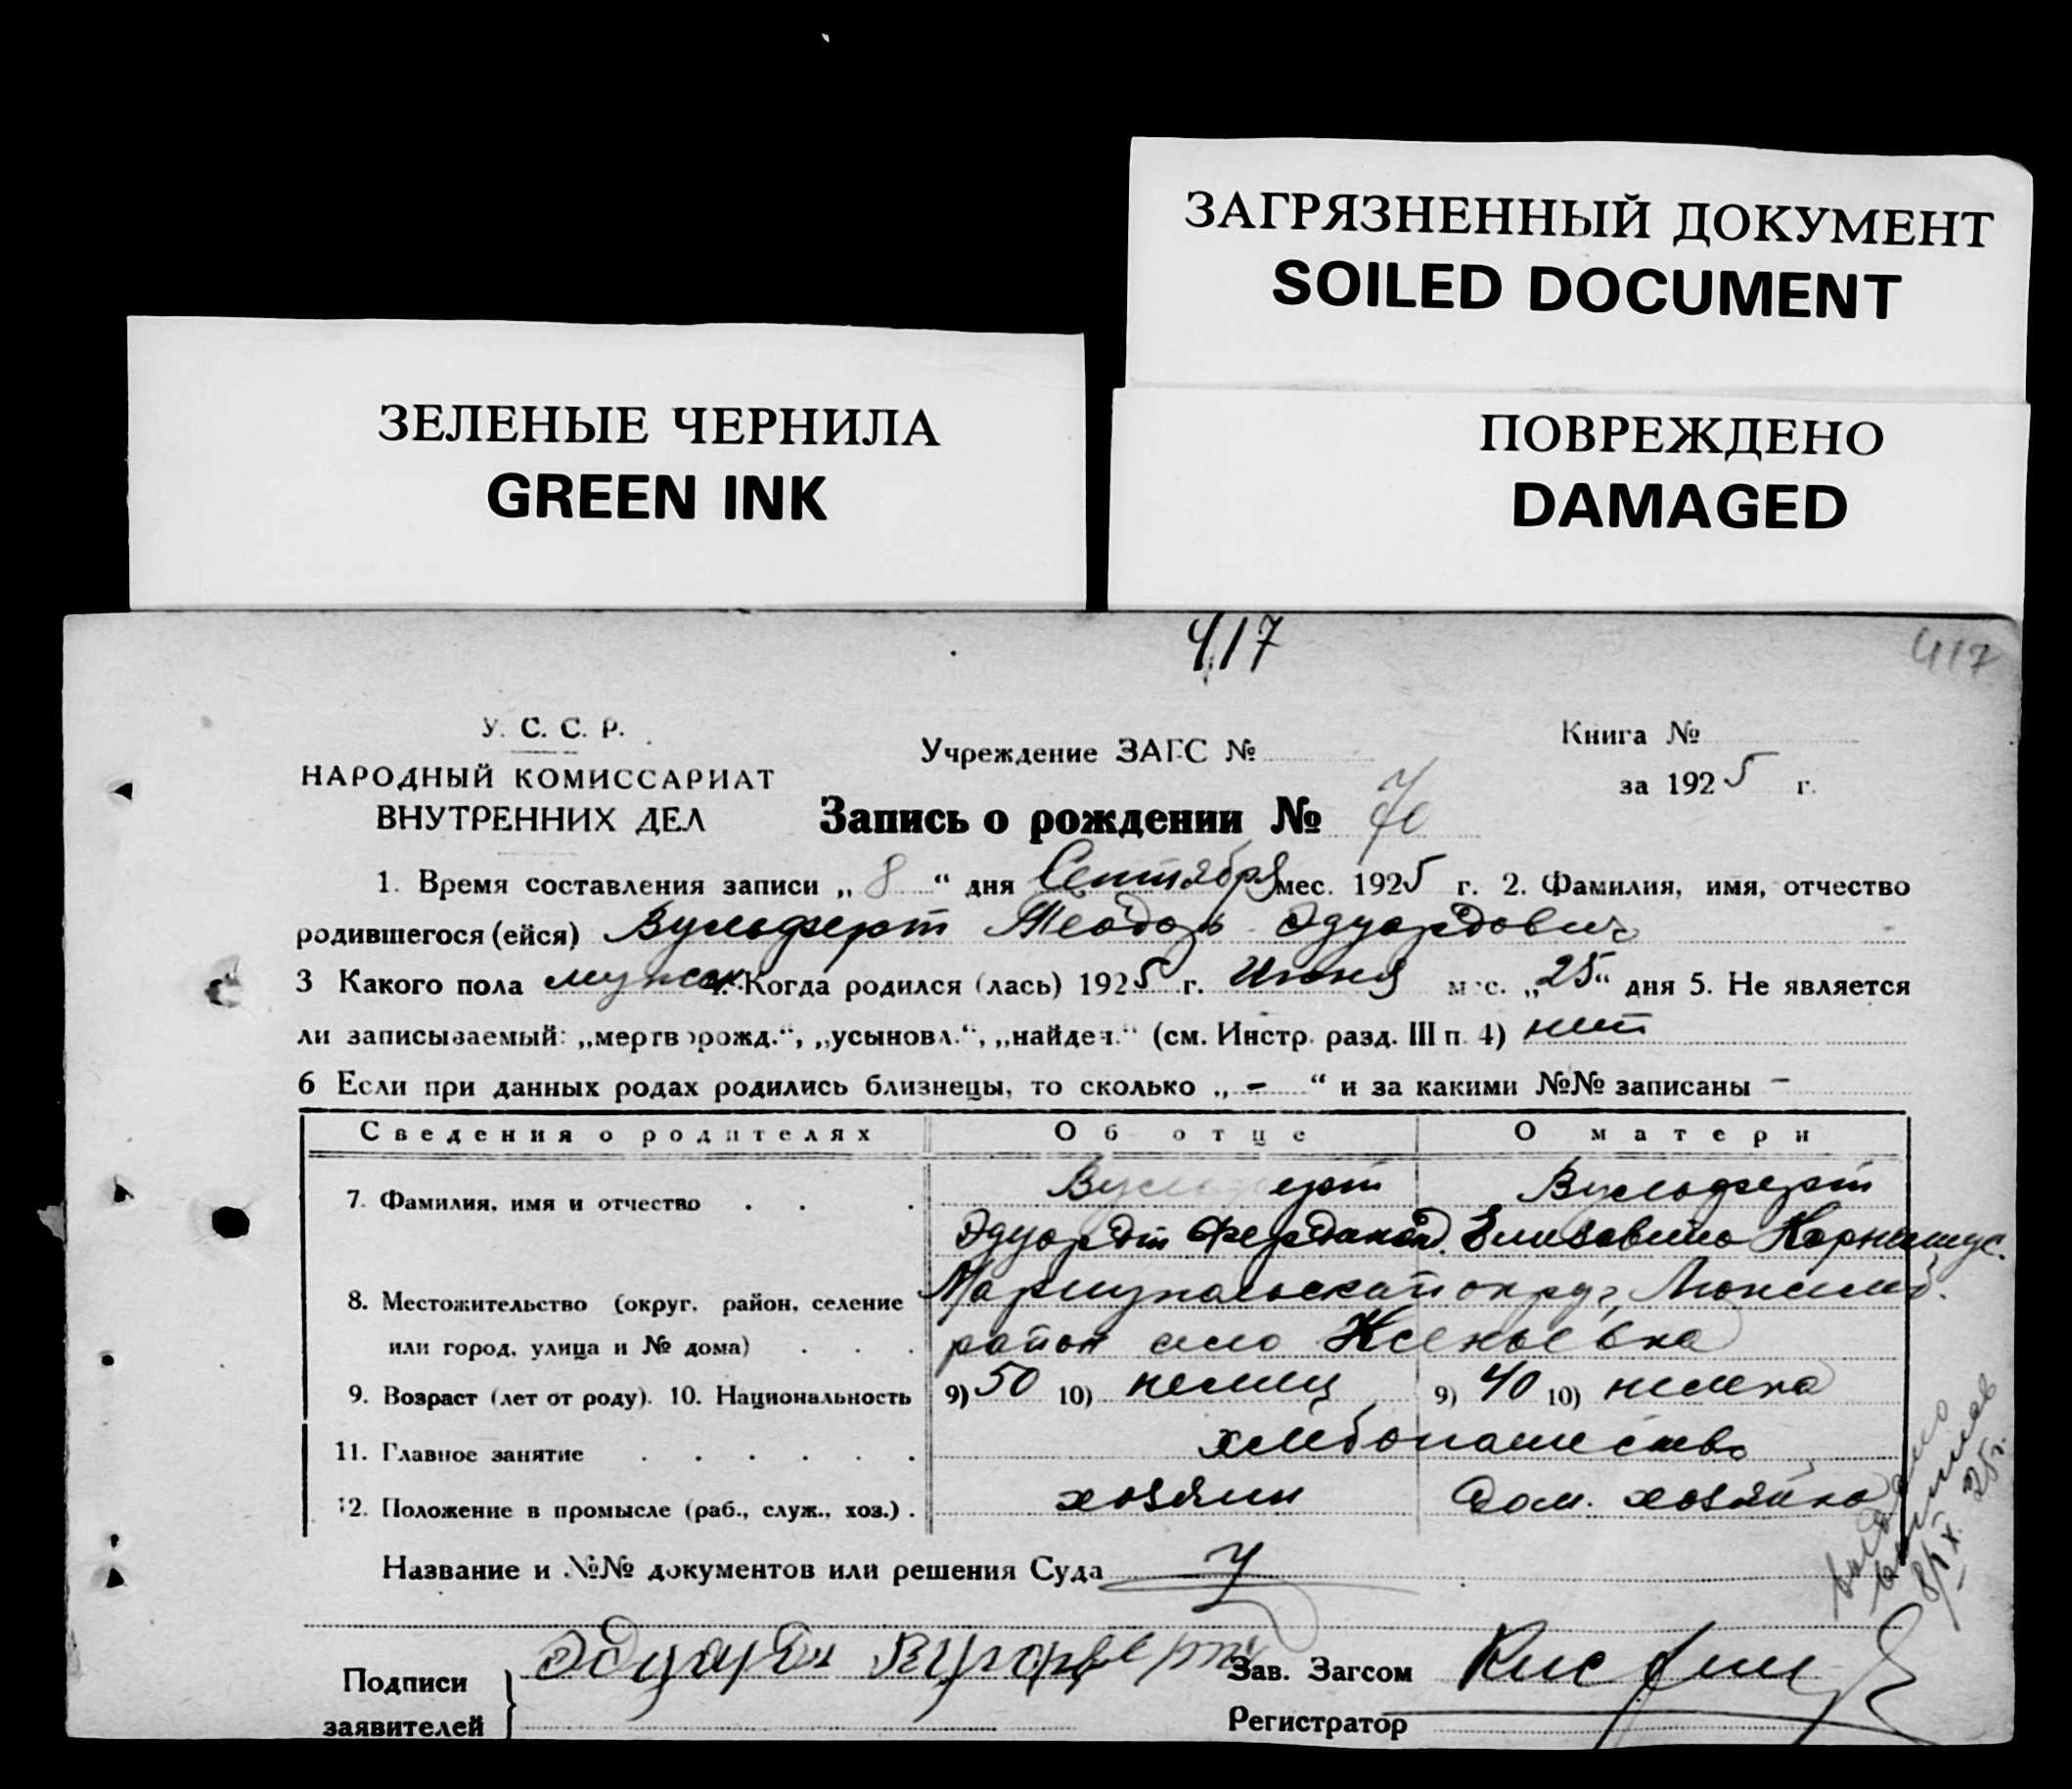 ЗАГРЯЗНЕННЫЙ ДОКУМЕНТ
SOILED DOCUMENT
ЗЕЛЕНЫЕ ЧЕРНИЛА
GREEN INK
ПОВРЕЖДЕНО
DAMAGED
417
417
У. С. С. Р.
НАРОДНЫЙ КОМИССАРИАТ
ВНУТРЕННИХ ДЕЛ
Учреждение ЗАГС №
Книга №
за 1925 г.
Запись о рождении № 70
1. Время составления записи „8“ дня Сентября мес. 1925 г. 2. Фамилия, имя, отчество
родившегося (ейся) Вульферт Теодор Эдуардович
3 Какого пола мужск. 4. Когда родился (лась) 1925 г. Июня мес. „25“ дня 5. Не является
ли записываемый: „мертворожд.“, „усыновл.“, „найден.“ (см. Инстр. разд. III п. 4) нет
6 Если при данных родах родились близнецы, то сколько „-“ и за какими №№ записаны -
Сведения о родителях Об отце О матери
7. Фамилия, имя и отчество . . . Вульферт Вульферт
Эдуардт Фердинанд. Елизавета Корнелиус.
8. Местожительство (округ, район, селение Мариупольский округ,
или город, улица и № дома) . . . район село Ксеньевка
9. Возраст (лет от роду). 10. Национальность 9) 50 10) немец 9) 40 10) немка
11. Главное занятие . . . . . . хлебопашество
12. Положение в промысле (раб., служ., хоз.) . хозяин Дом. хозяйка
Название и №№ документов или решения Суда
8/IX 25 г.
Подписи
заявителей } Эдуард Вульферт
Зав. Загсом
Регистратор